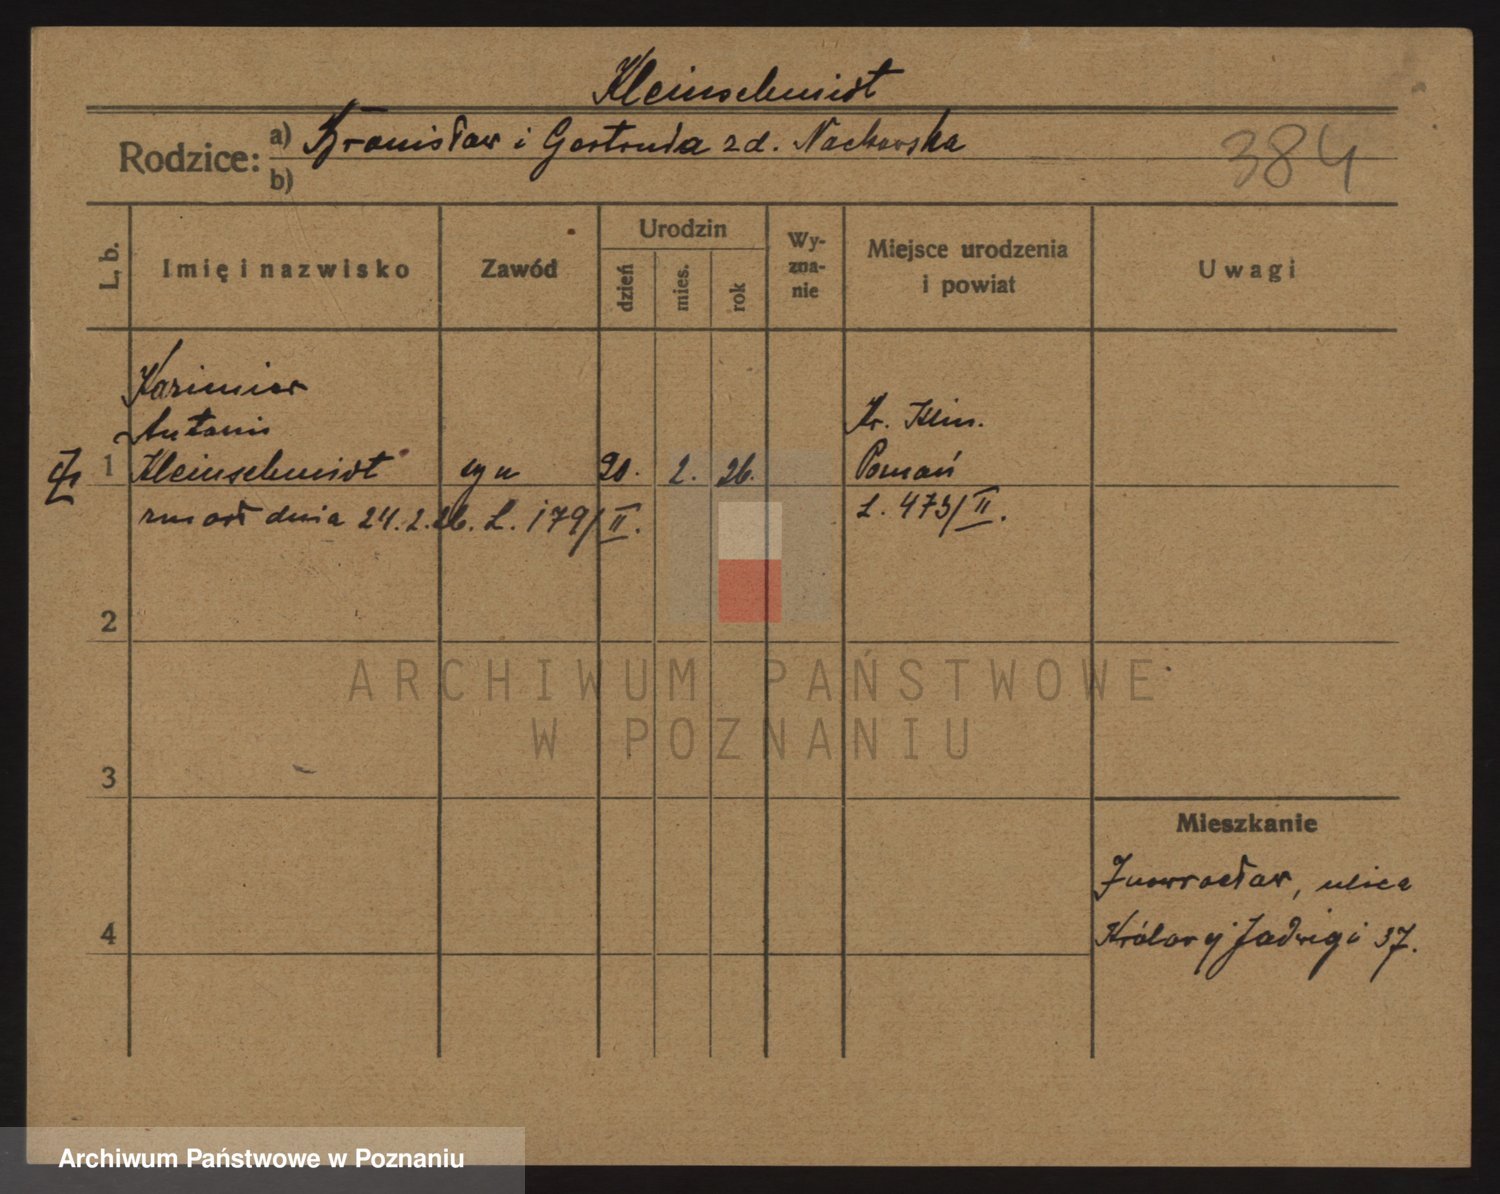 Kleinschmidt
Rodzice: a) Bronisław i Gertruda zd. Nackowska
b)
384
L. b.
Imię i nazwisko
Zawód
Urodzin
dzień
mies.
rok
Wy-
zna-
nie
Miejsce urodzenia
i powiat
Uwagi
Kazimierz
Antoni
1 Kleinschmidt syn 20. 2. 26.
zmarł dnia 24.2.26. L. 179/II.
Kr. Klin.
Poznań
L. 473/II.
2
3
4
Mieszkanie
Inowrocław, ulica
Królowej Jadwigi 37.
ARCHIWUM PAŃSTWOWE
W POZNANIU
Archiwum Państwowe w Poznaniu